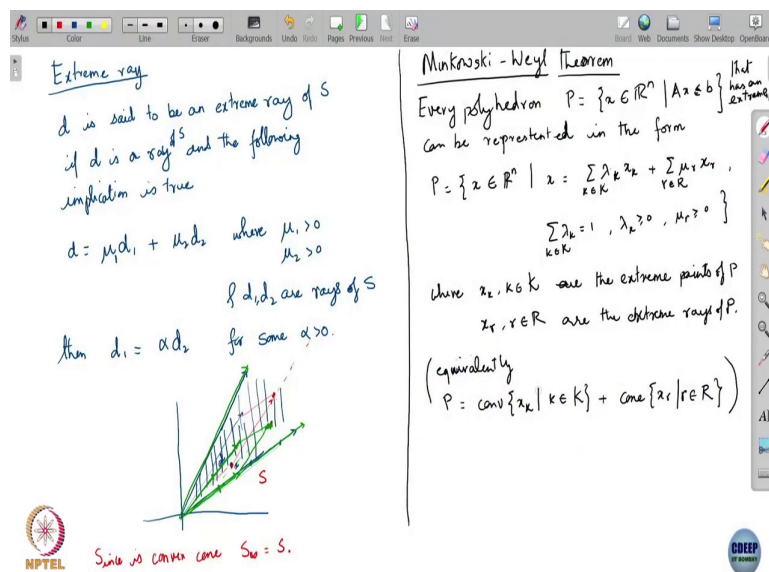 Stylus
Color
Line
Eraser
Backgrounds
Undo Redo
Pages Previous Next Erase
Board Web Documents Show Desktop OpenBoard
Extreme ray
d is said to be an extreme ray of S
if d is a ray of S and the following
implication is true
d = μ₁d₁ + μ₂d₂ where μ₁ > 0
μ₂ > 0
& d₁, d₂ are rays of S
then d₁ = αd₂ for some α > 0.
S
Since is convex cone S∞ = S.
NPTEL
Minkowski - Weyl Theorem
Every polyhedron P = {x ∈ ℝⁿ | Ax ≤ b} that has an extreme
can be represented in the form
P = {x ∈ ℝⁿ | x = Σ_{k∈K} λ_k x_k + Σ_{r∈R} μ_r x_r ,
Σ_{k∈K} λ_k = 1 , λ_k ≥ 0 , μ_r ≥ 0 }
where x_k, k ∈ K are the extreme points of P
x_r, r ∈ R are the extreme rays of P.
(equivalently
P = conv{x_k | k ∈ K} + cone{x_r | r ∈ R})
CDEEP
IIT BOMBAY